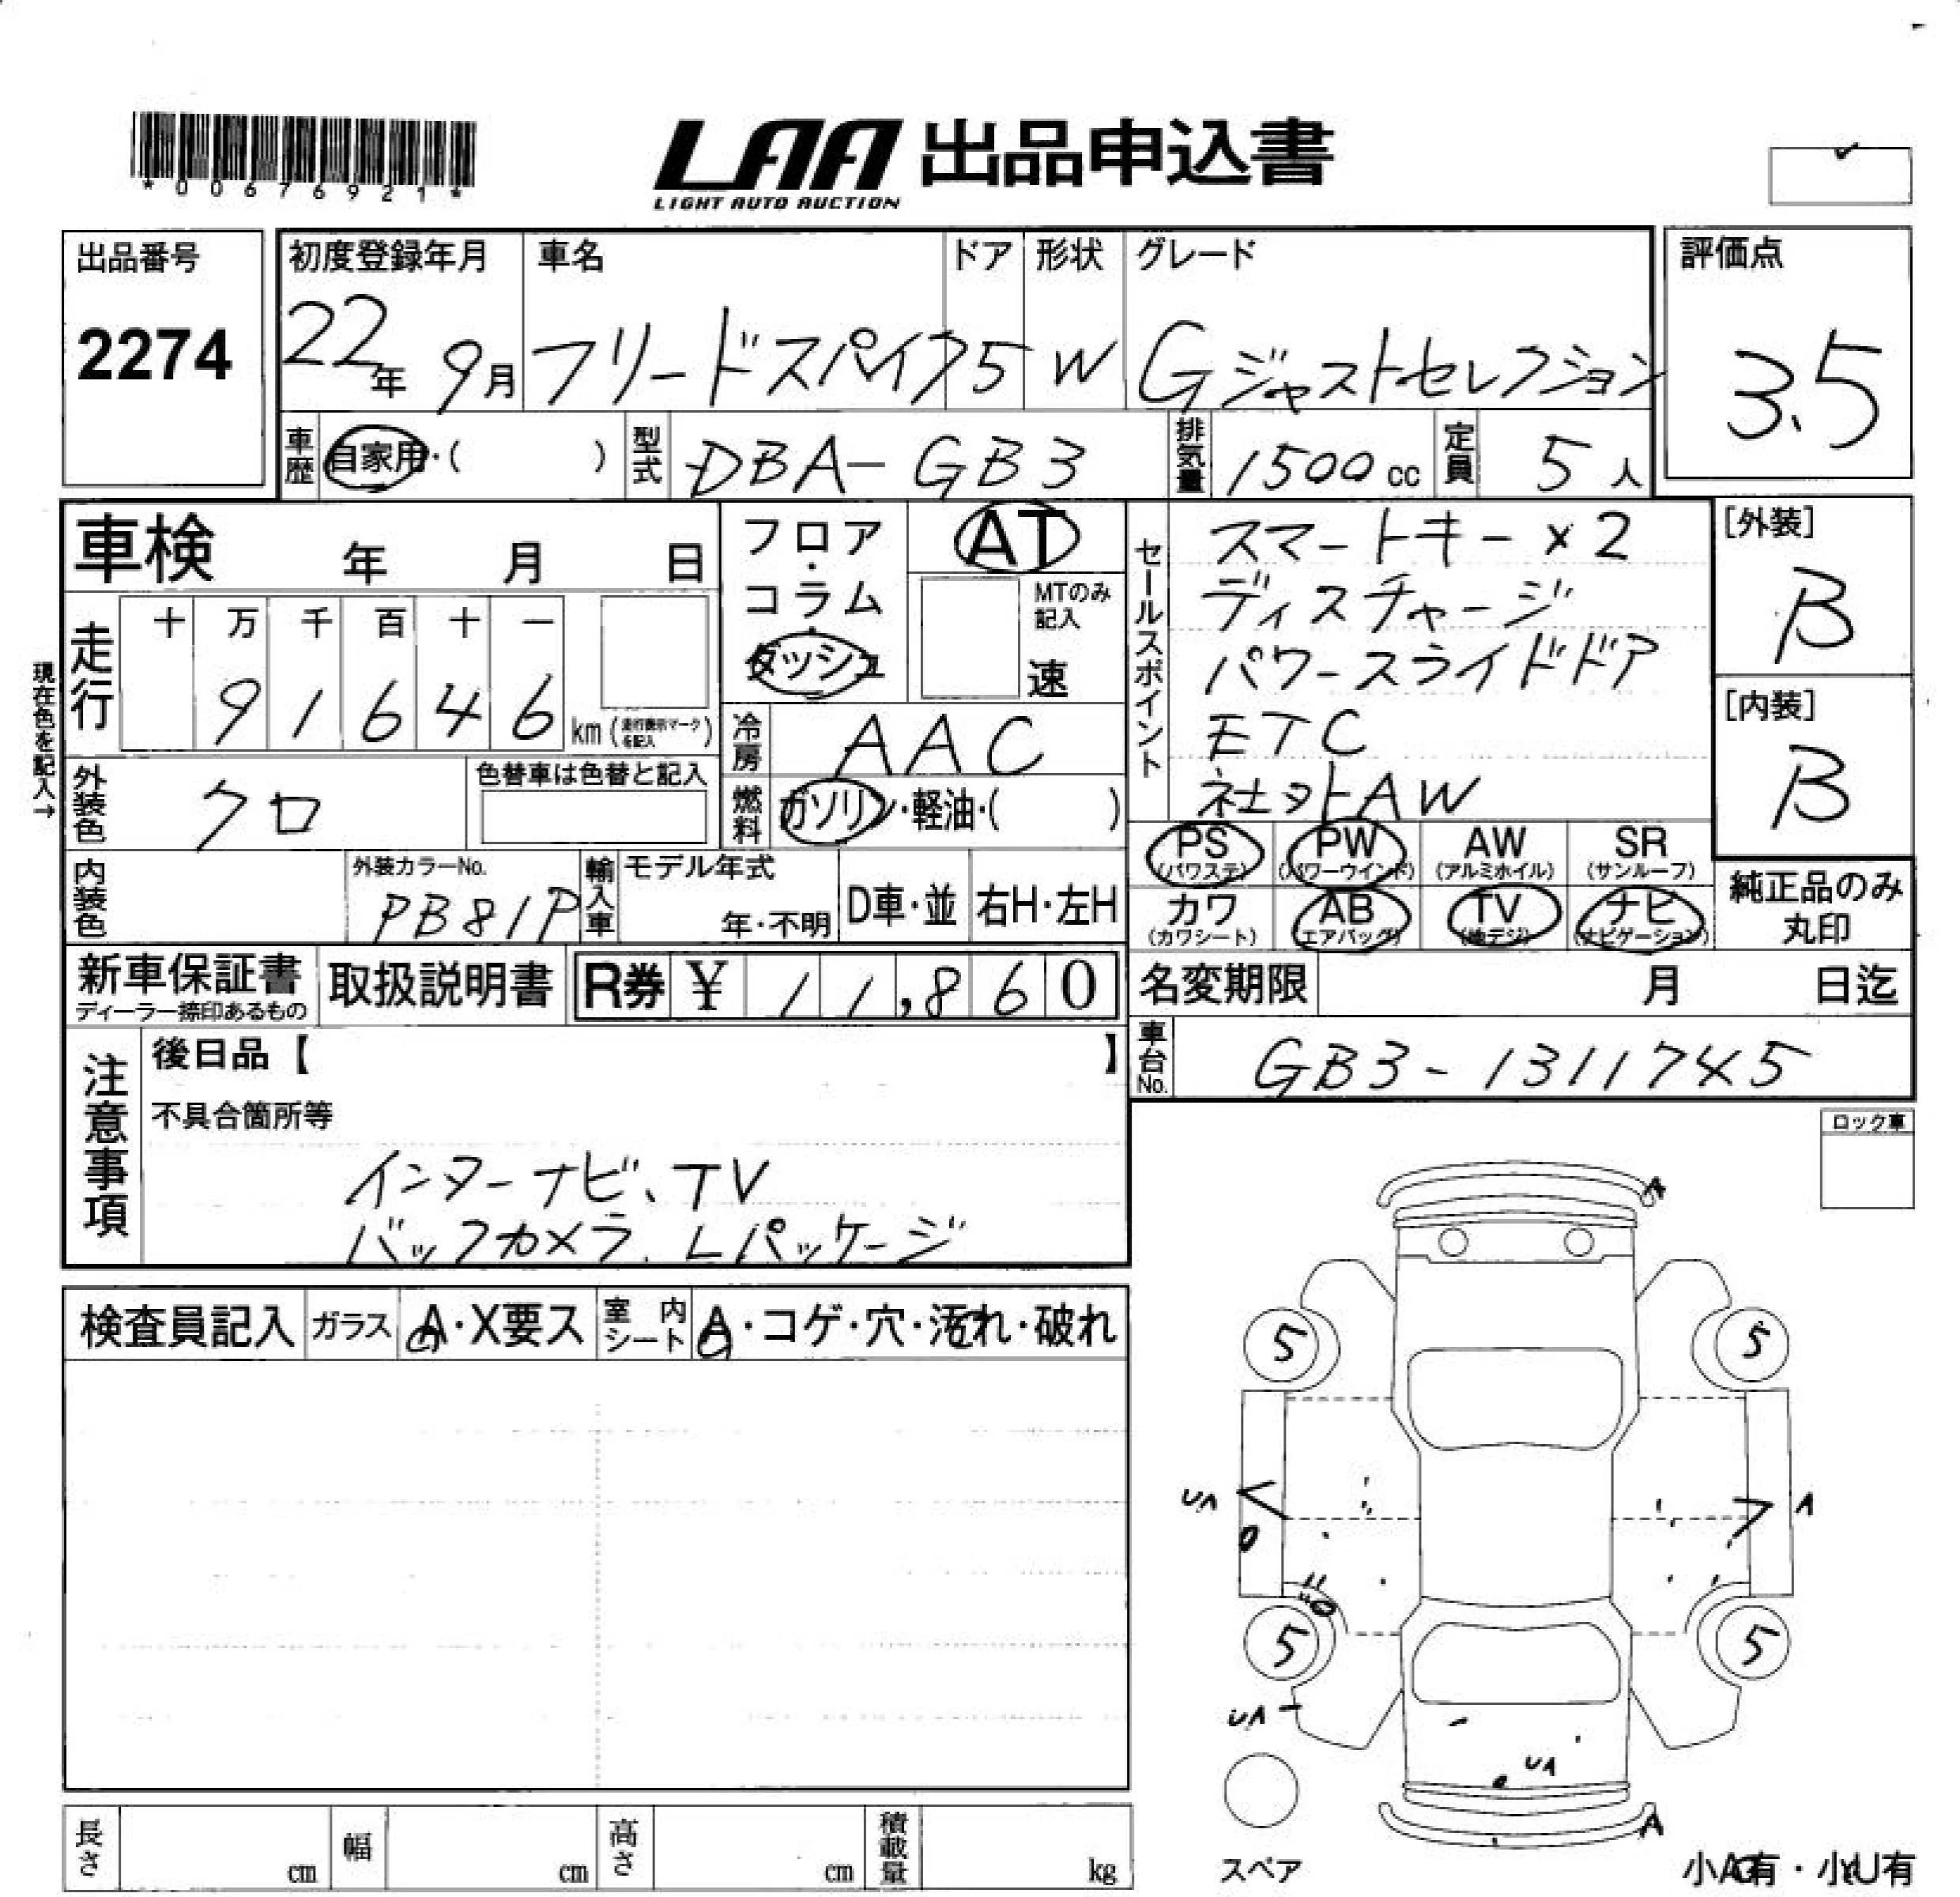 *00676921*
LAA 出品申込書
LIGHT AUTO AUCTION
出品番号
2274
初度登録年月
22年 9月
車名
フリードスパイク
ドア
5
形状
W
グレード
Gジャストセレクション
評価点
3.5
車歴
自家用・( )
型式
DBA-GB3
排気量
1500cc
定員
5人
車検 年 月 日
フロア・コラム・ダッシュ
AT
MTのみ記入
速
セールスポイント
スマートキー×2
ディスチャージ
パワースライドドア
ETC
社外AW
[外装]
B
[内装]
B
現在色を記入→
走行
十 万 千 百 十 一
9 1 6 4 6
km (走行表示マークを記入)
冷房
AAC
外装色
クロ
色替車は色替と記入
燃料
ガソリン・軽油・( )
PS (パワステ)
PW (パワーウインド)
AW (アルミホイル)
SR (サンルーフ)
カワ (カワシート)
AB (エアバッグ)
TV (地デジ)
ナビ (ナビゲーション)
純正品のみ丸印
内装色
外装カラーNo.
PB81P
輸入車
モデル年式
年・不明
D車・並
右H・左H
新車保証書
ディーラー捺印あるもの
取扱説明書
R券 ¥ 11,860
名変期限 月 日迄
車台No.
GB3-1311745
注意事項
後日品【 】
不具合箇所等
インターナビ、TV
バックカメラ、Lパッケージ
ロック車
検査員記入
ガラス
A・X要ス
室内シート
A・コゲ・穴・汚れ・破れ
A
5 5
UA A
5 5
UA
UA
A
スペア
長さ cm
幅 cm
高さ cm
積載量 kg
小A有・小U有